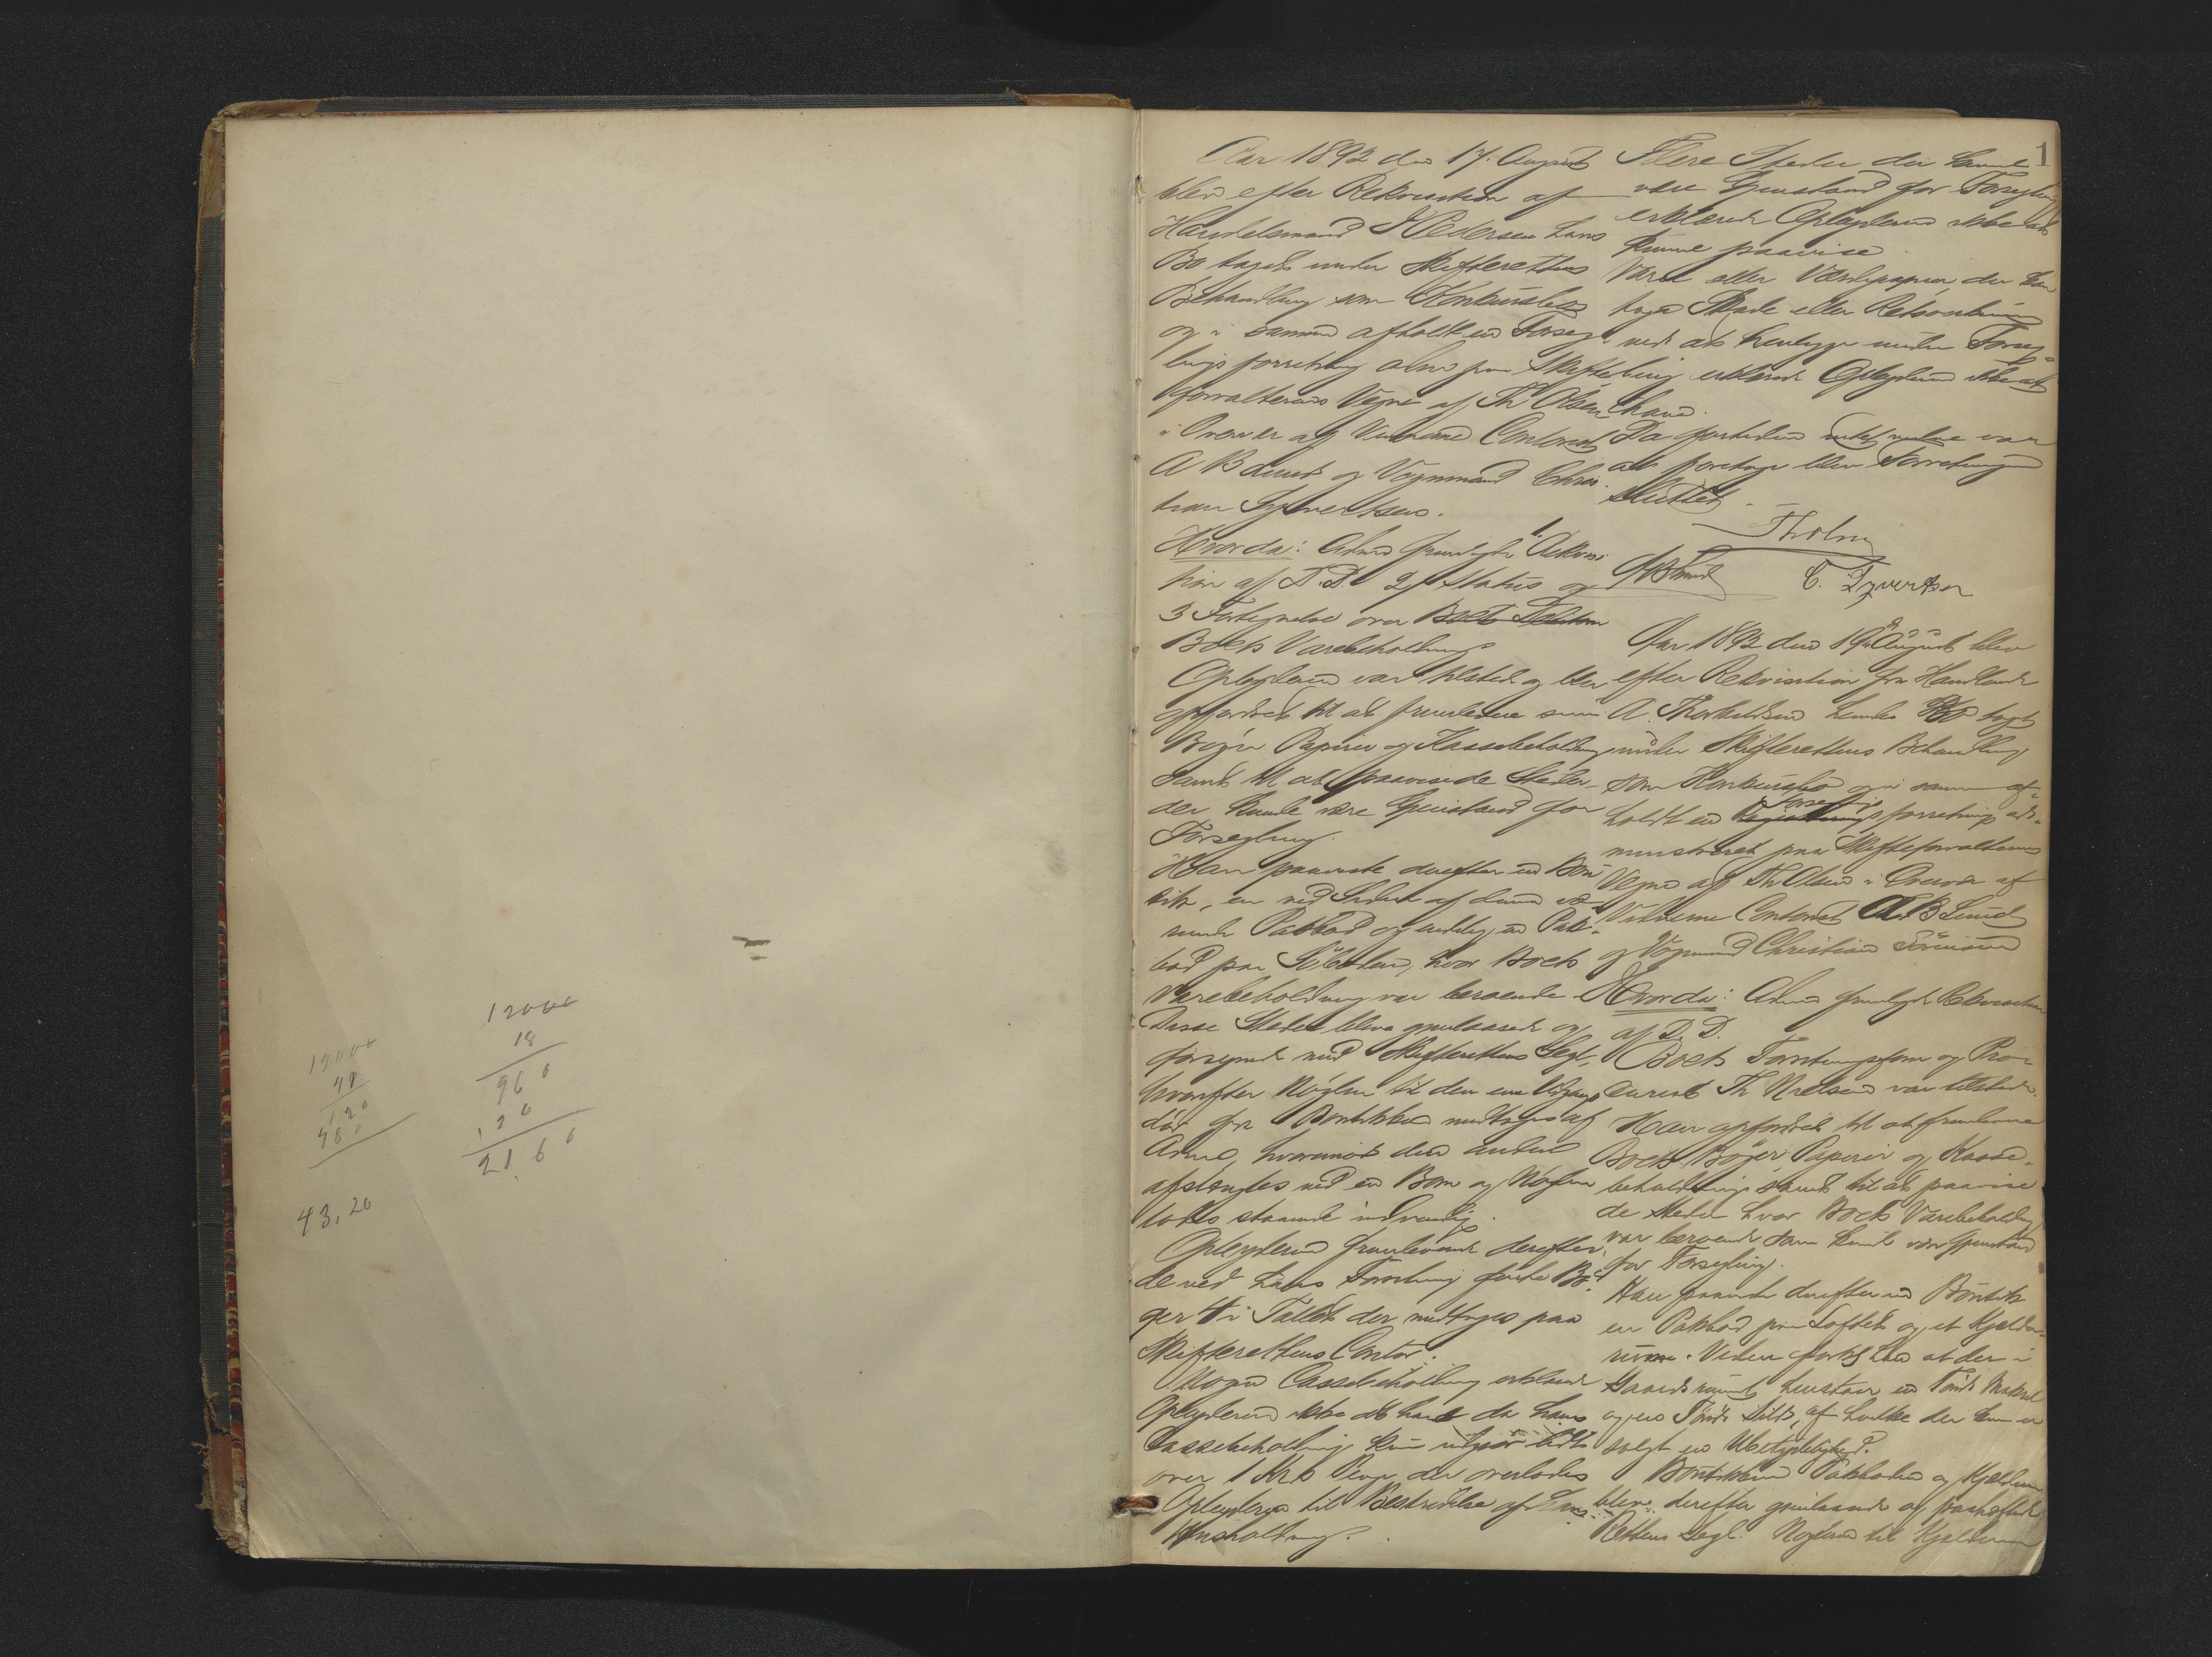 12000
48
120
480
43,20
12000
18
960
120
2160
1
Aar 1892 den 17. August
blev efter Rekvisition af
Handelsmand Pedersen hans
Bo taget under Skifterettens
Behandling som Konkursbo
og i samme afholdt en Forseg-
lingsforretning adm paa Skifte-
forvalterens Vegne af Th Olsen
i Overvær af Vidnerne Contorist
A B Lund og Vognmand Chris-
tian Syvertsen.
Hvorda: Adm fremlagde 1. Rekvisi-
tion af D.D. 2 Status og
3 Fortegnelse over
Boets Varebeholdning
Opbyderen var tilstede og blev
opfordret til at fremlevere sine
Bøger Papirer og Kassebeholdning
samt til at paavise de Steder
der kunde være Gjenstand for
Forsegling.
Han paaviste derefter en Bou-
tik, en ved Siden af denne væ-
rende Pakbod og endelig en Pak-
bod paa Söboden, hvor Boets
Varebeholdning var beroende
Disse Steder bleve gjenlaasede og
forsynede med Skifterettens Segl,
hvorefter Nøglen til den ene Udgangs
dör fra Boutikken modtoges af
Adm, hvorimod den anden
afstængtes ved en Bom og Nøglen
lodes staaende indvendig.
Opbyderen fremleverede derefter
de ved hans Forretning førte Bø-
ger 4 i Tallet der modtoges paa
Skifterettens Contor.
Nogen Cassebeholdning erklærede
Opbyderen ikke at have da hans
Cassebeholdning kun udgjør lidt
over 1 Kr Penge der overlodes
Opbyderen til Bestridelse af hans
Husholdning.
Flere Steder der kunne
være Gjenstand for Forsegling
erklærede Opbyderen ikke at
kunne paavise
Varer eller Værdipapirer, der kan
tage Skade eller
ved at henlegge under Forseg-
ling erklærede Opbyderen ikke at
have.
Da forresten intet videre var
at foretage blev Forretningen
sluttet.
ThOlsen
ABLund
C. Syvertsen
Aar 1892 den 19 August blev
efter Rekvisition fra Handlende
A. Thorkildsen hendes Bo taget
under Skifterettens Behandling
som Konkursbo og i samme af-
holdt en Forseglingsforretning ad-
ministreret paa Skifteforvalterens
Vegne af Th Olsen i Overvær af
Vidnerne Contorist A B Lund
og Vognmand Christian
Hvorda: Adm fremlagde Rekvisition
af D.D.
Boets Forretningsfører og Pro-
curist Th Nielsen var tilstede.
Han opfordret til at fremlevere
Boets Bøger Papirer og Kasse-
beholdning samt til at paavise
de Steder hvor Boets Varebeholdning
var beroende som kunde være Gjenstand
for Forsegling.
Han paaviste derefter en Boutik
en Pakbod paa Loftet og et Kjælder-
rum. Videre at der i
Gaardsrummet henstaar en Tönde
og en Tönde Sild, af hvilke der kun er
solgt en Ubetydelighed.
Boutikken Pakboden og Kjælderen
blev derefter gjenlaasede og paaheftede
Rettens Segl. Nøglerne til Kjælderen